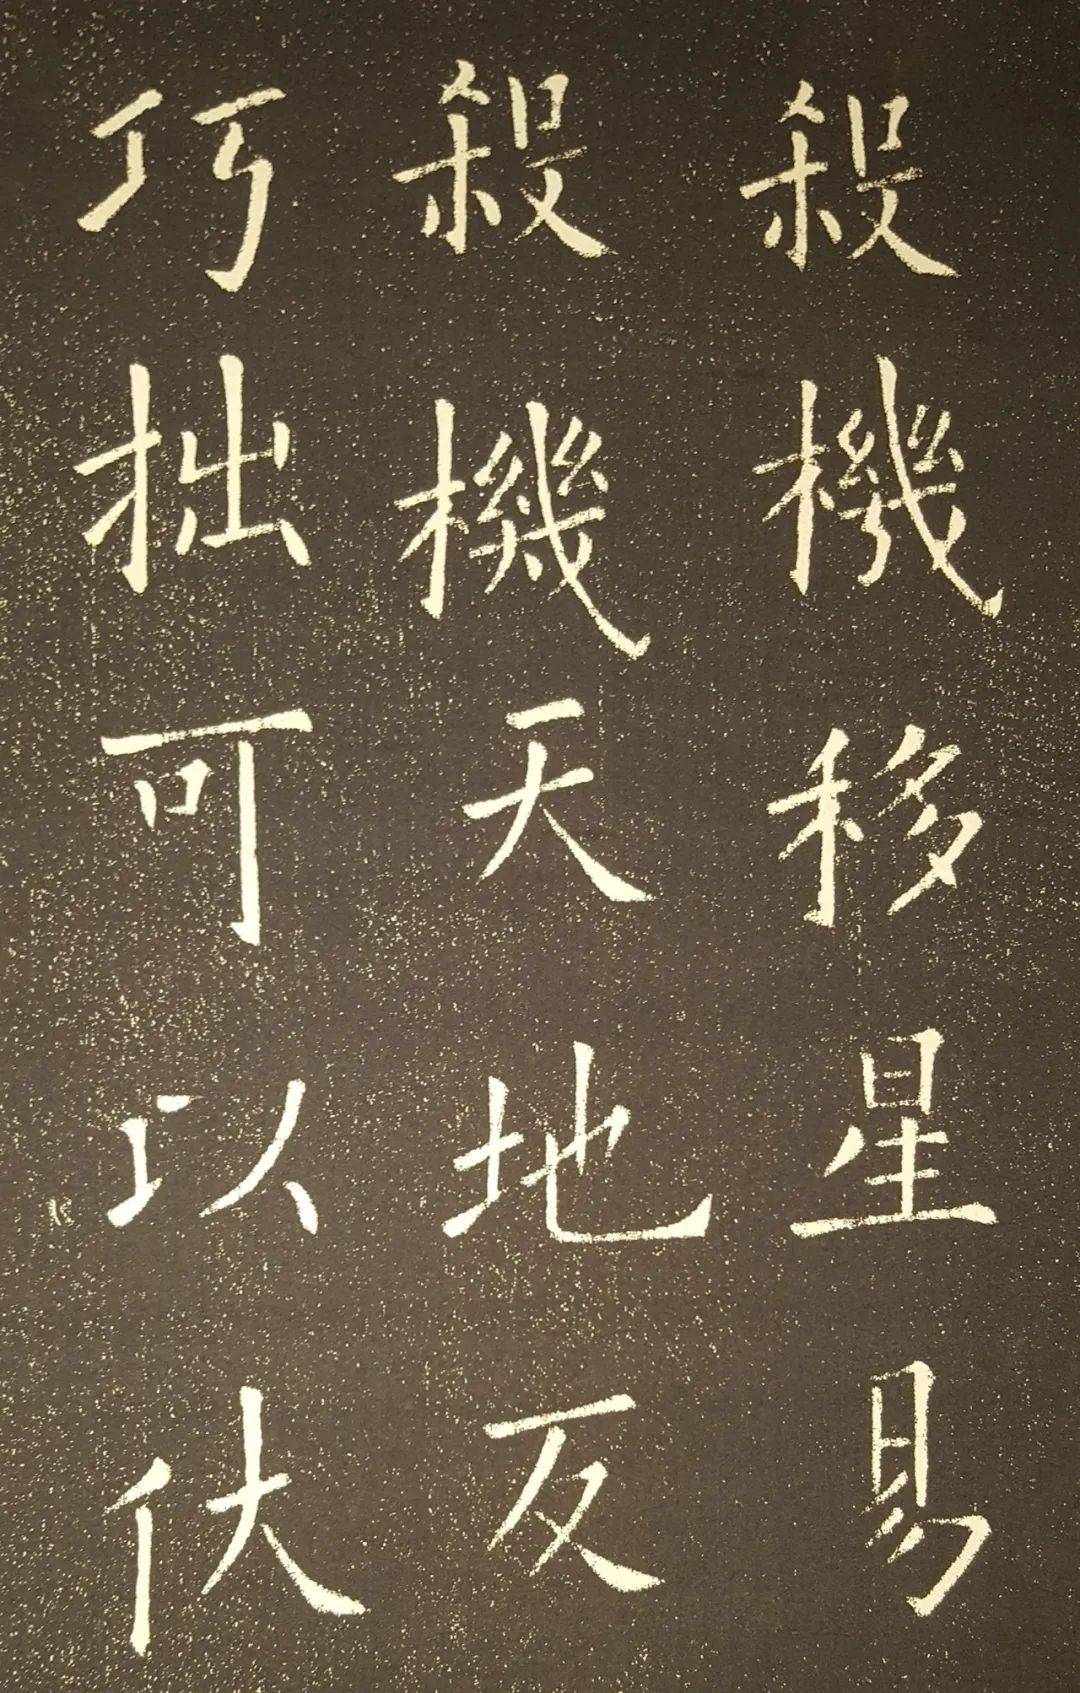 殺機移星易
殺機天地反
巧拙可以伏